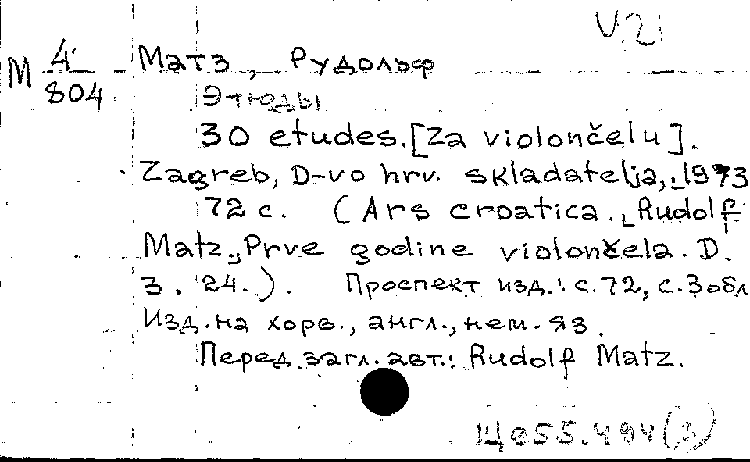 V21
М 4 Матз, Рудольф
804 Этюды
30 etudes. [Za violončelu].
Zagreb, D-vo hrv. skladatelja, 1973
72 с. (Ars croatica. Rudolf
Matz, Prve godine violončela. D.
3. 24.). Проспект изд.: с.72, с.3 обл
Изд. на хорв., англ., нем. яз.
Перед загл. авт.: Rudolf Matz.
Ц055.494(3)